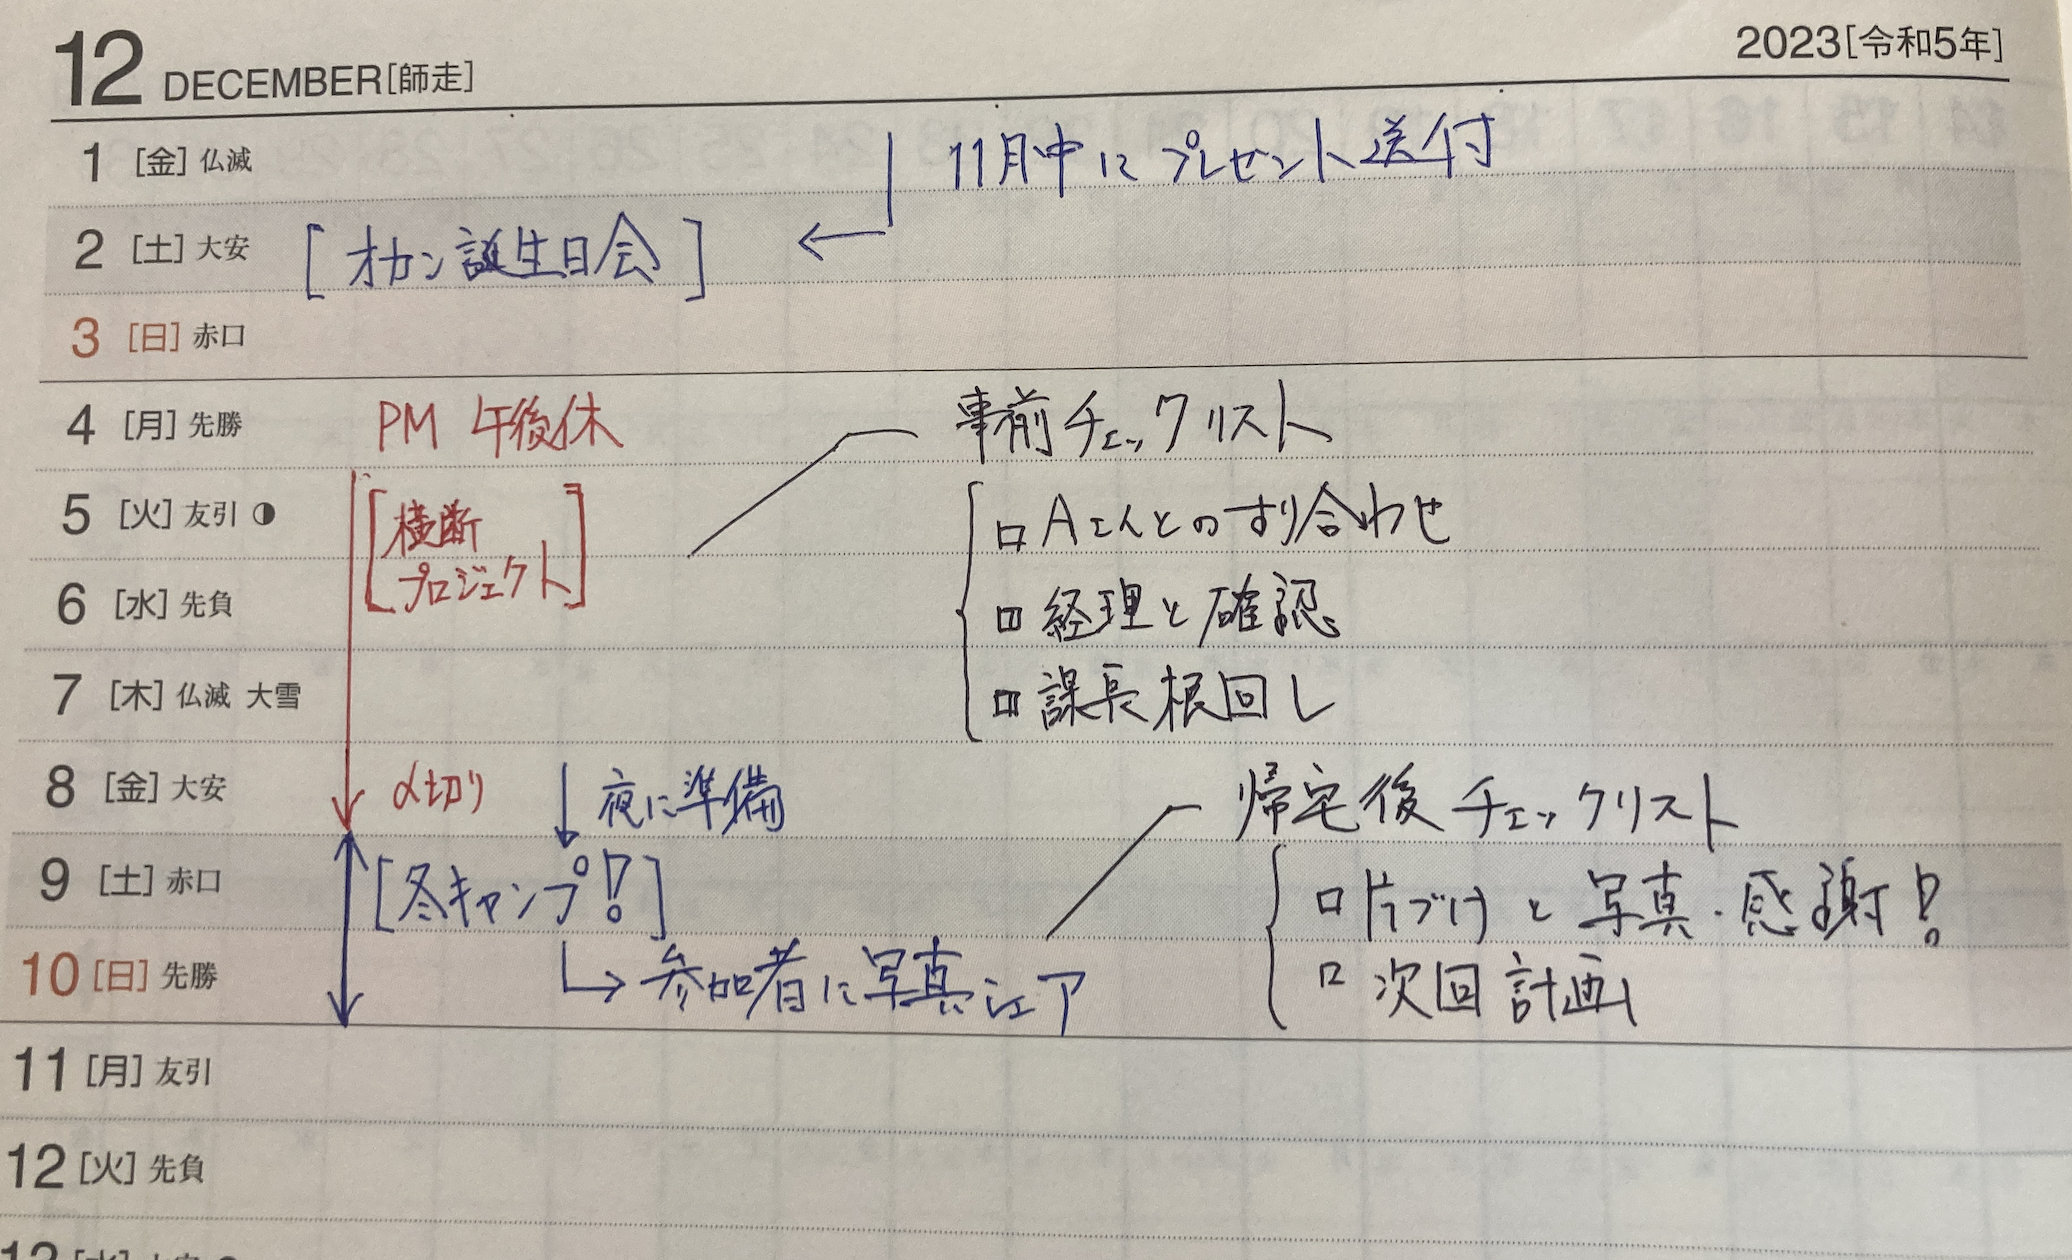 12 DECEMBER[師走]
2023[令和5年]
1 [金] 仏滅
11月中にプレゼント送付
2 [土] 大安
[オカン誕生日会]
←
3 [日] 赤口
4 [月] 先勝
PM 午後休
事前チェックリスト
5 [火] 友引
[横断
プロジェクト]
□ Aさんとのすり合わせ
6 [水] 先負
□ 経理と確認
7 [木] 仏滅 大雪
□ 課長根回し
8 [金] 大安
〆切り
↓ 夜に準備
帰宅後チェックリスト
9 [土] 赤口
[冬キャンプ!]
□ 片づけと写真・感謝!
10 [日] 先勝
→ 参加者に写真シェア
□ 次回計画
11 [月] 友引
12 [火] 先負